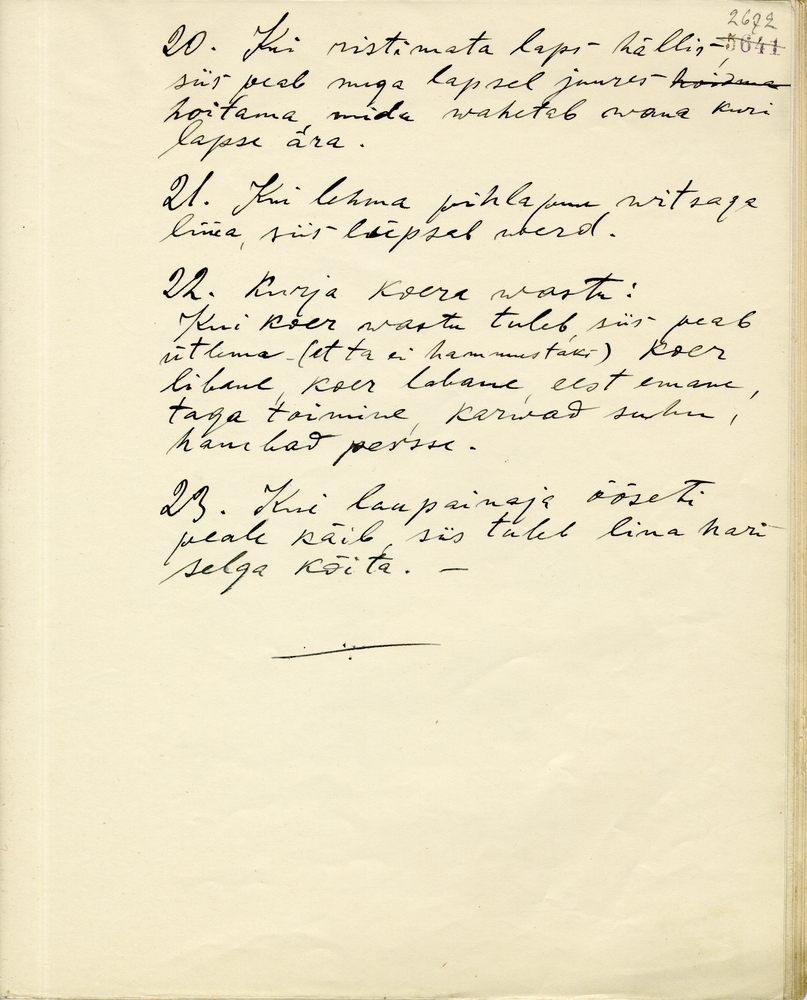 2672
5641
20. Kui ristimata laps hällis,
siis peab nuga lapsel juures hoidma
hoitama, midu wahetab wana kuri
lapse ära.
21. Kui lehma pihlapuu witsaga
lüüa, siis lüpsab werd.
22. Kurja koera wastu:
Kui koer wastu tuleb, siis peab
ütlema (et ta ei hammustaks) Koer
libane, koer labane, eest emane,
taga toimine, karwad suhu,
hambad persse.
23. Kui laupainaja ööseti
peale käib, siis tuleb lina hari
selga köita. —